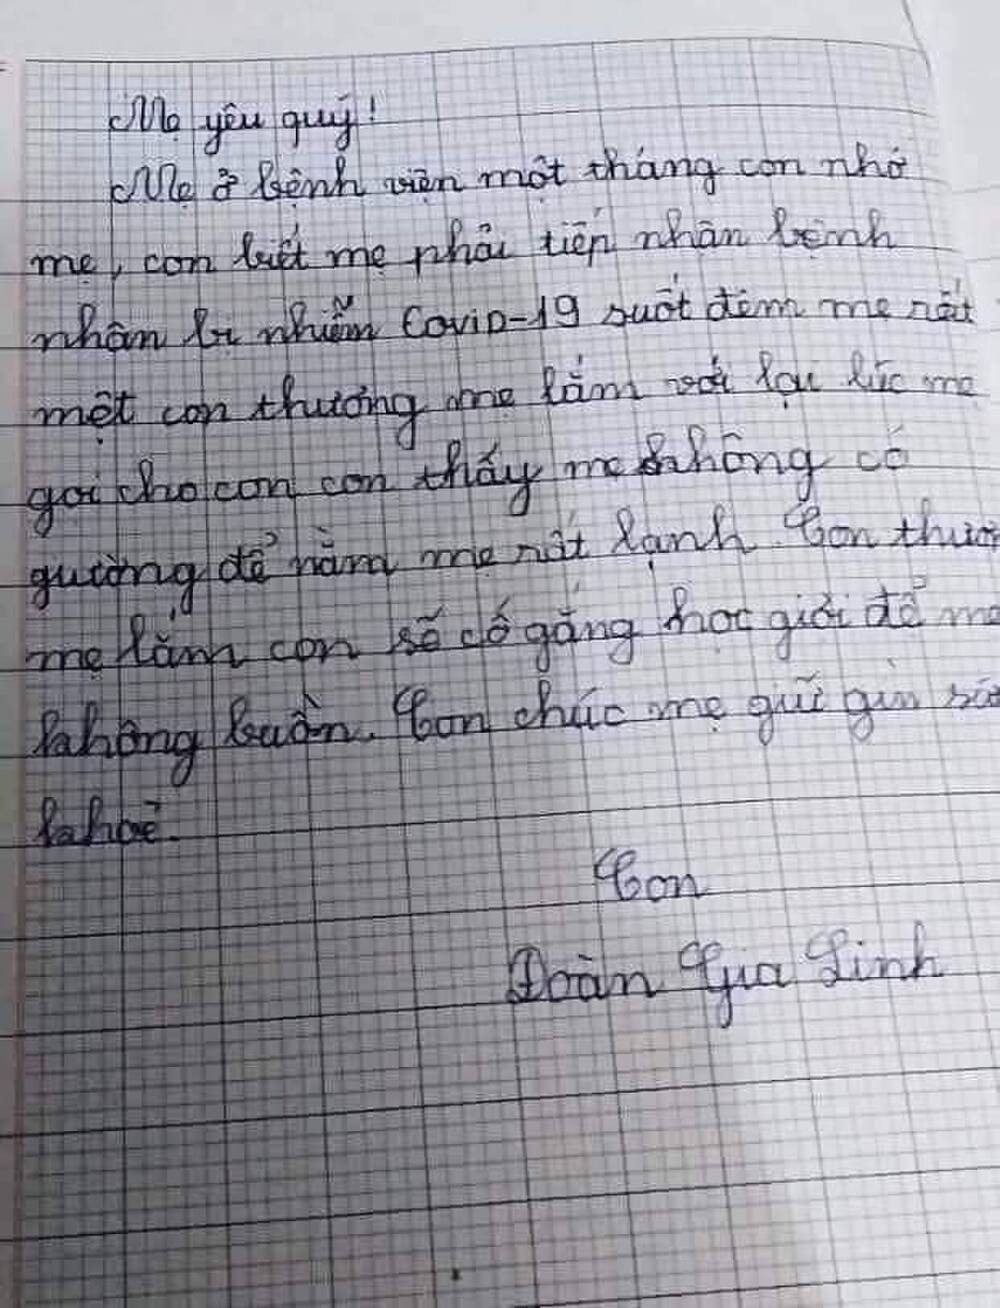 Mẹ yêu quý!
Mẹ ở bệnh viện một tháng con nhớ
mẹ, con biết mẹ phải tiếp nhận bệnh
nhân bị nhiễm Covid-19 suốt đêm mẹ rất
mệt con thương mẹ lắm với lại lúc mẹ
gọi cho con con thấy mẹ không có
giường để nằm mẹ rất lạnh. Con thươn
mẹ lắm con sẽ cố gắng học giỏi để mẹ
không buồn. Con chúc mẹ giữ gìn sức
khoẻ.
Con
Đoàn Gia Linh